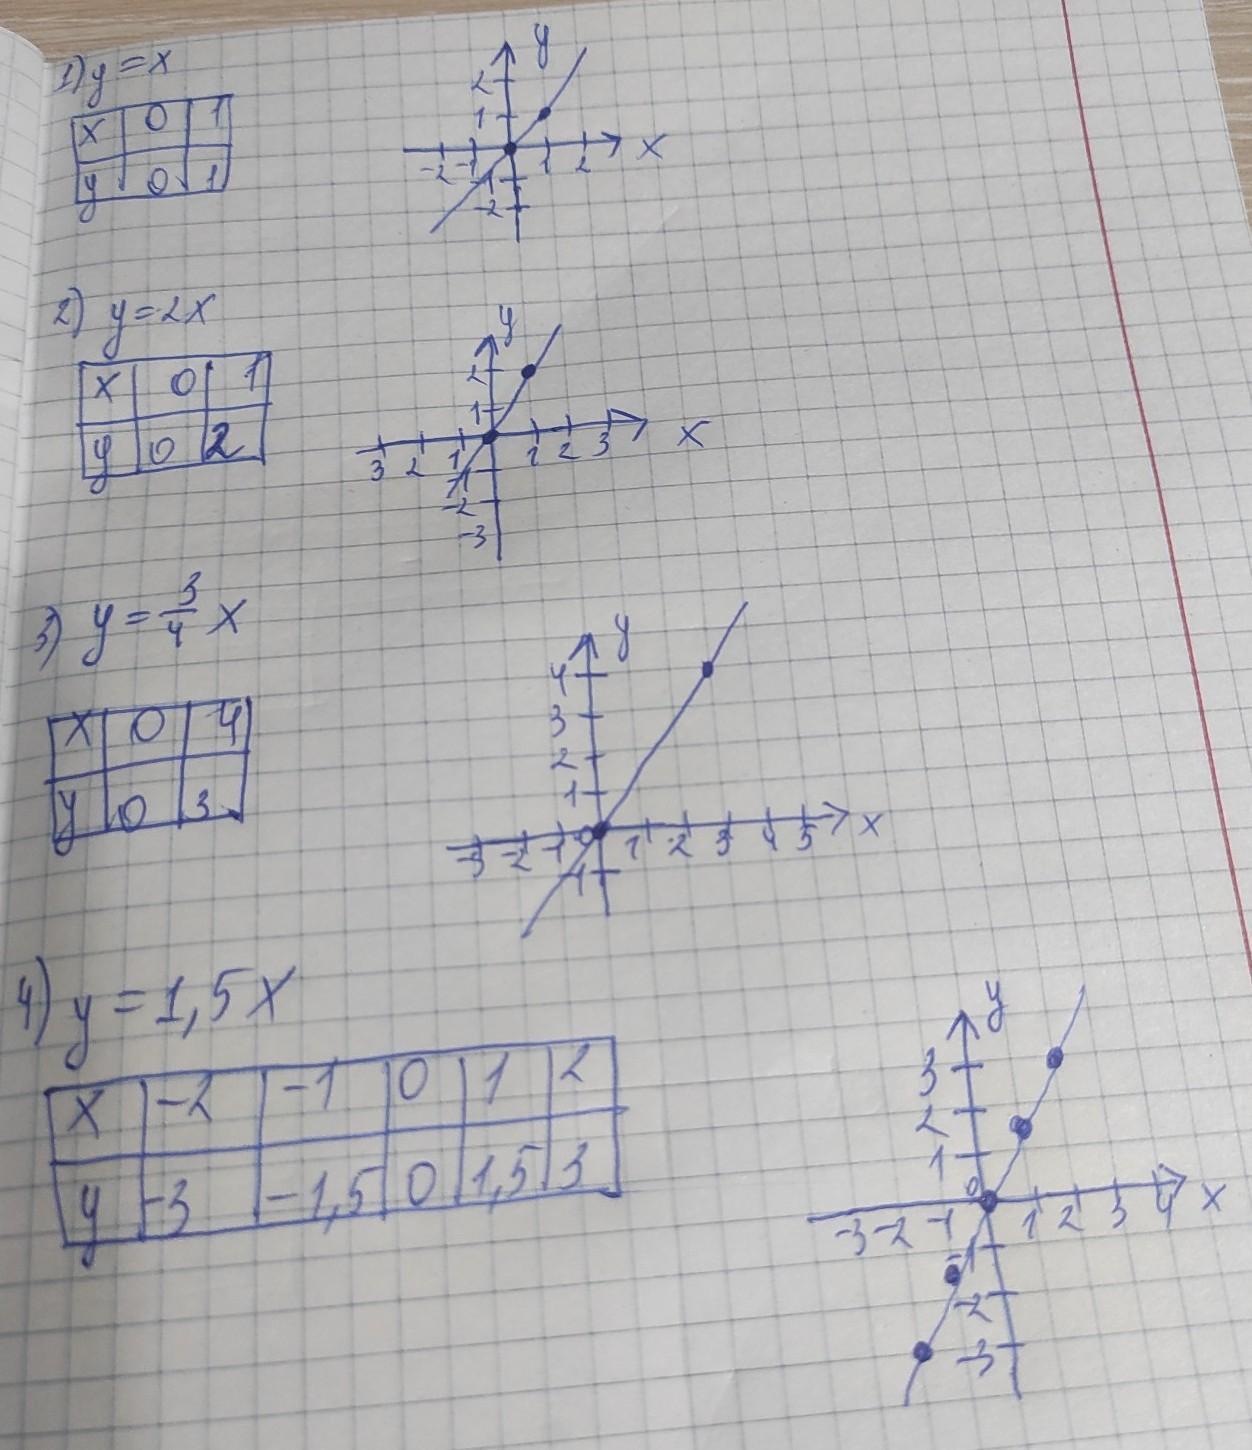 1) y = x
x 0 1
y 0 1
y
2
1
-2 -1 1 2 x
-1
-2
2) y = 2x
x 0 1
y 0 2
y
2
1
3 2 1 1 2 3 x
-1
-2
-3
3) y = 3/4 x
x 0 4
y 0 3
y
4
3
2
1
-3 -2 -1 0 1 2 3 4 5 x
-1
4) y = 1,5x
x -2 -1 0 1 2
y -3 -1,5 0 1,5 3
y
3
2
1
0
-3 -2 -1 1 2 3 4 x
-1
-2
-3